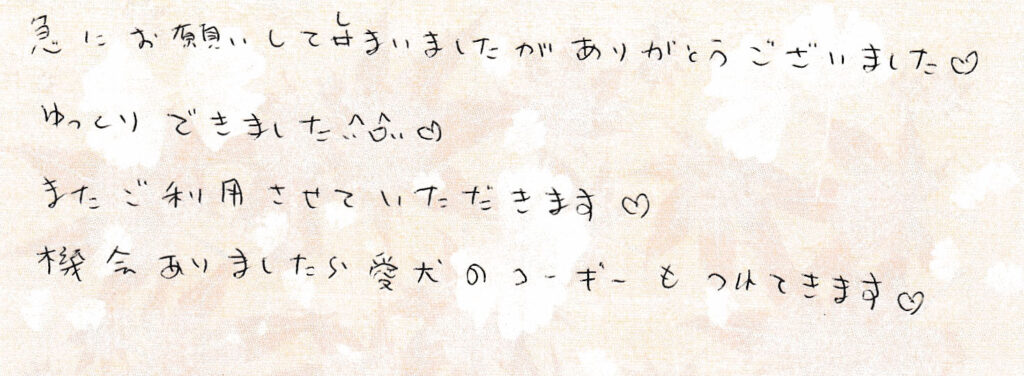 急にお願いしてしまいましたがありがとうございました♡
ゆっくりできました^ô^♡
またご利用させていただきます♡
機会ありましたら愛犬のコーギーもつれてきます♡